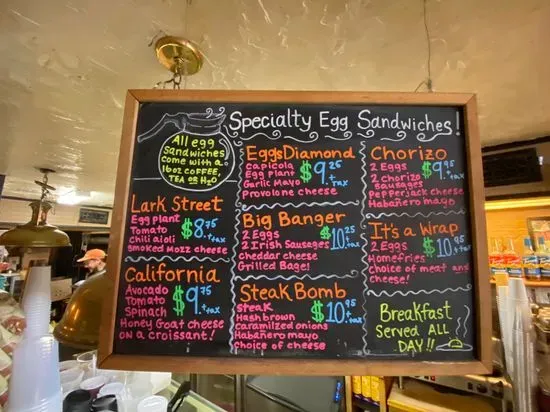 Specialty Egg Sandwiches!
All egg
Sandwiches
come with a
16oz COFFEE,
TEA OR H2O
Lark Street
Egg plant
Tomato
chili aioli
smoked Mozz cheese
$8.75
+tax
California
Avocado
Tomato
Spinach
Honey Goat cheese
on a croissant!
$9.75
+tax
EggsDiamond
capicola
Egg Plant
Garlic Mayo
Provolone cheese
$9.25
+tax
Big Banger
2 Eggs
2 Irish Sausages
cheddar cheese
Grilled Bagel
$10.25
+tax
Steak Bomb
steak
Hashbrown
caramilzed onions
Habanero mayo
choice of cheese
$10.95
+tax
Chorizo
2 Eggs
2 Chorizo
Sausages
Pepperjack cheese
Habanero mayo
$9.95
+tax
It's a Wrap
2 Eggs
Homefries
choice of meat and
cheese!
$10.95
+tax
Breakfast
Served ALL
DAY!!